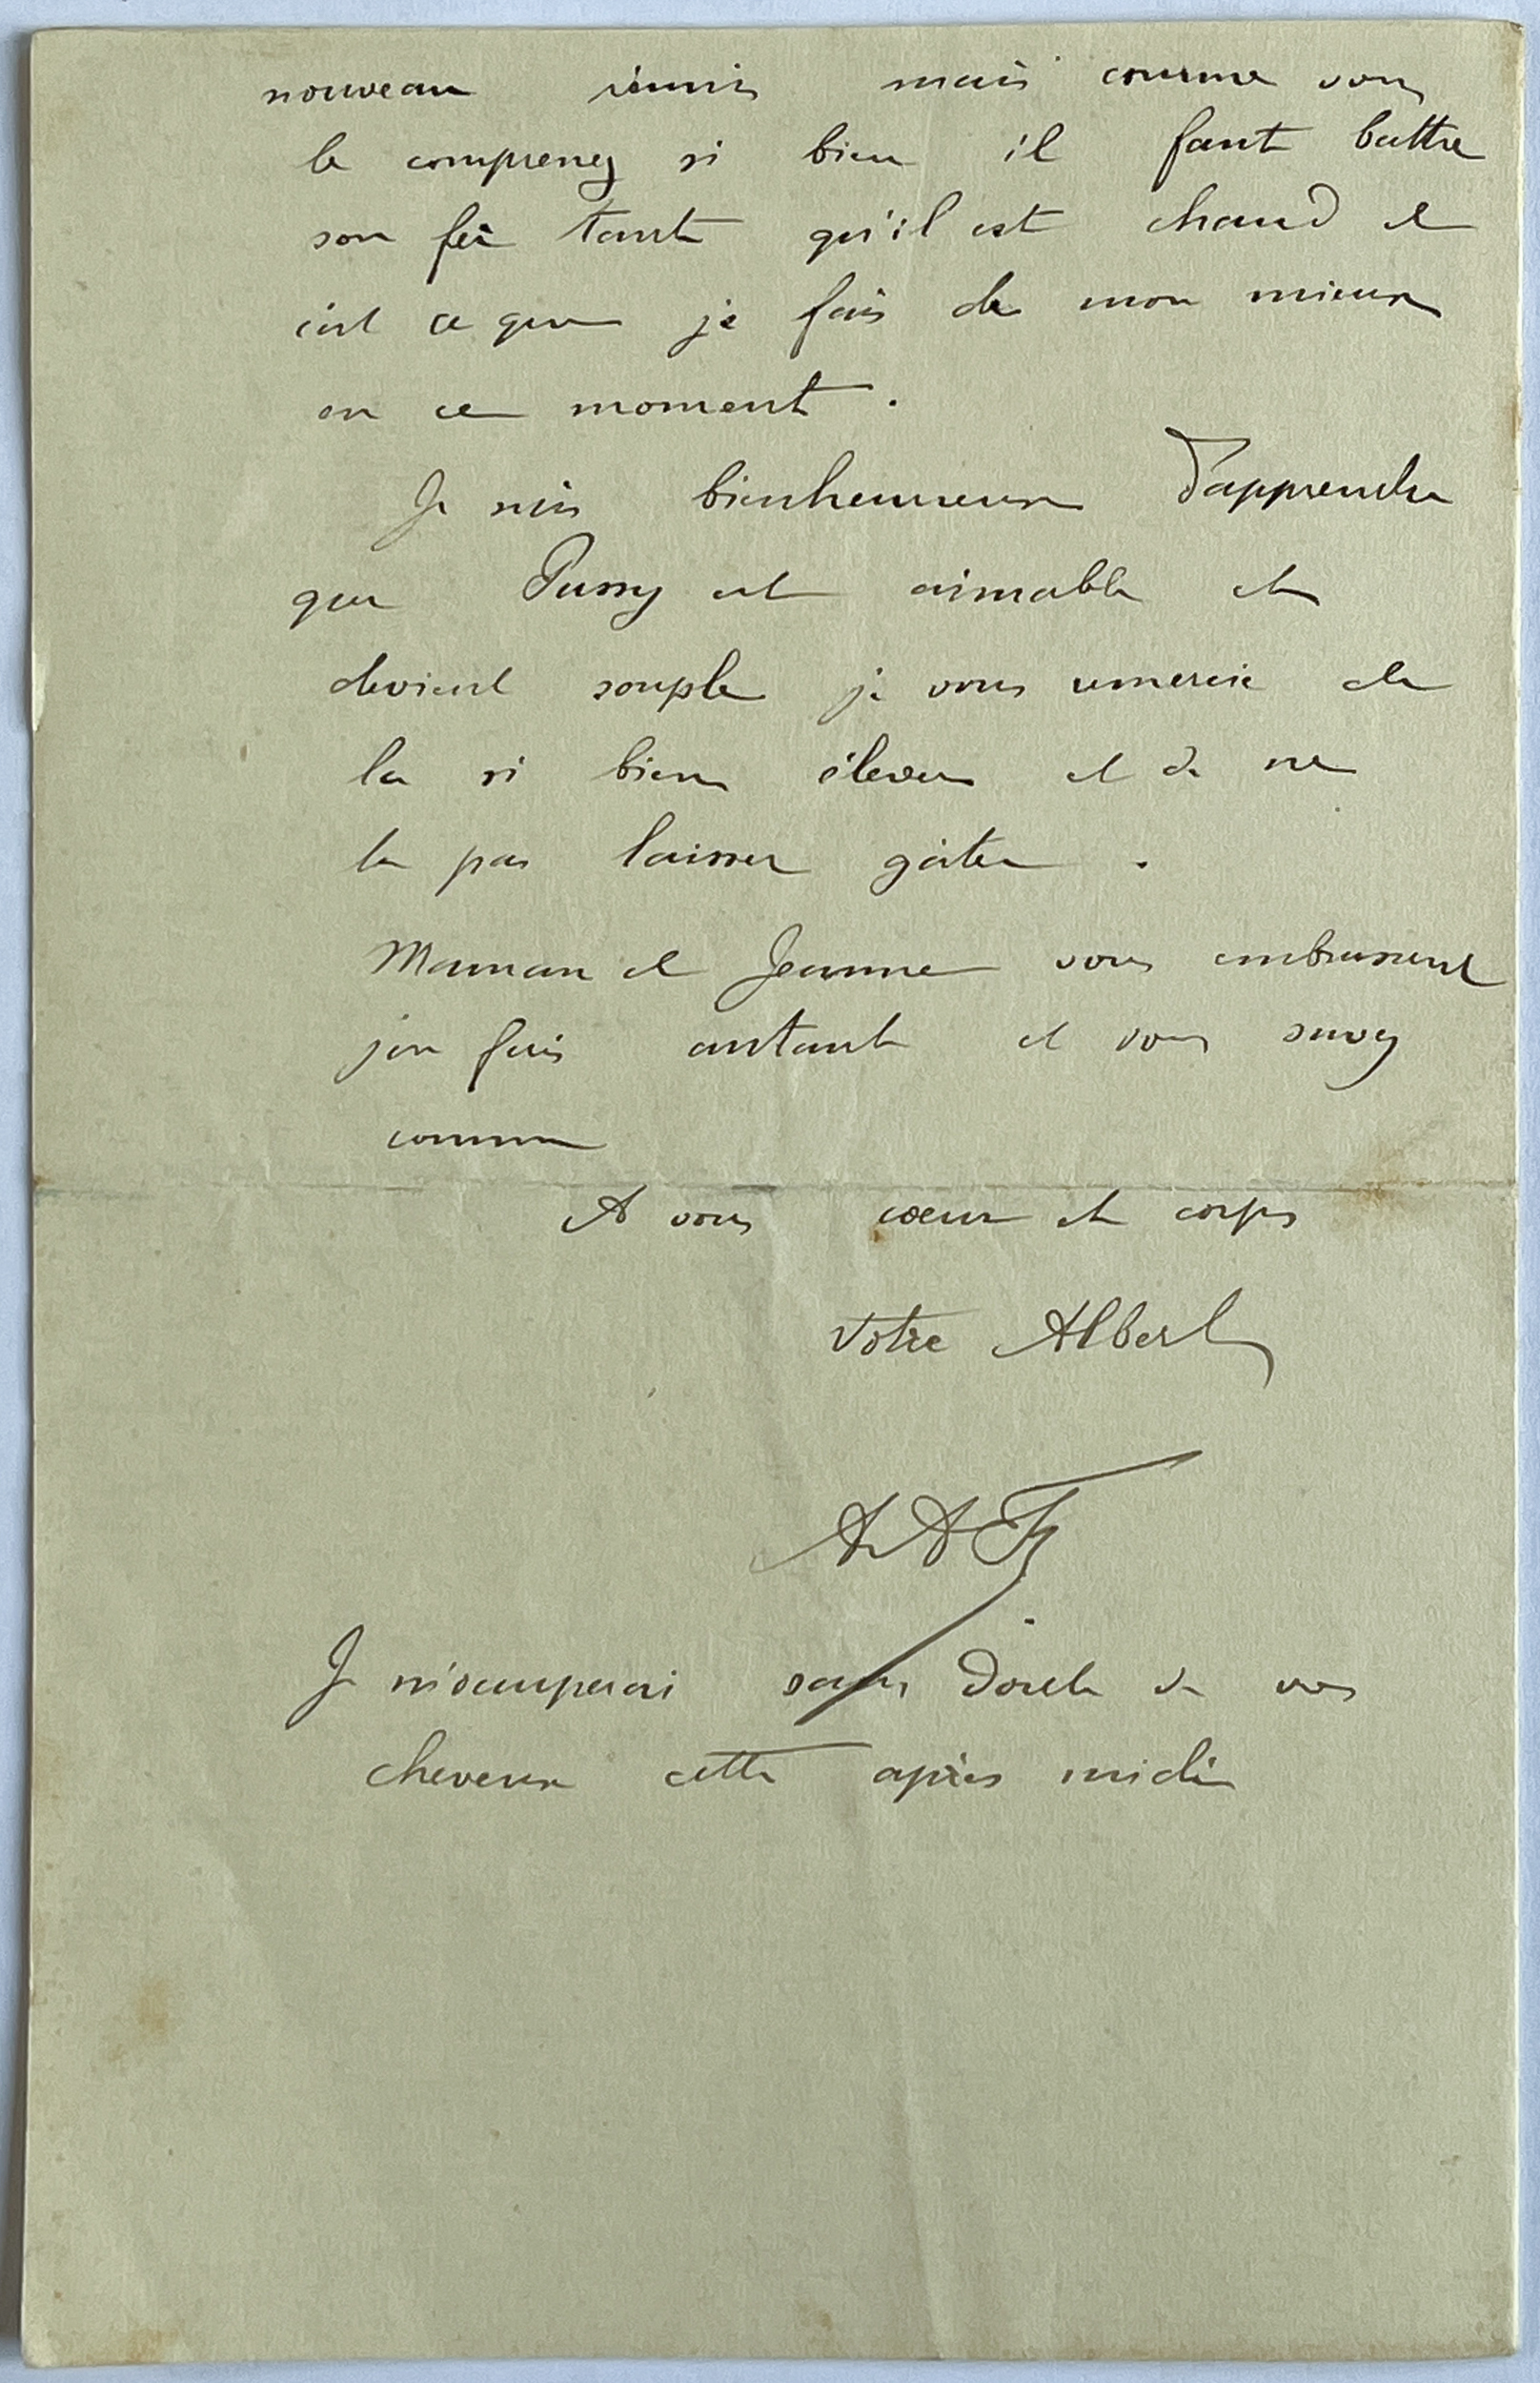 nouveau réunis mais comme vous
le comprenez si bien il faut battre
son fer tant qu'il est chaud et
c'est ce que je fais de mon mieux
en ce moment.
Je suis bienheureux d'apprendre
que Pussy est aimable et
devient souple je vous remercie de
la si bien élever et de ne
la pas laisser gâter.
Maman et Jeanne vous embrassent
j'en fais autant et vous savez
comme
A vous coeur et corps
Votre Albert
AAF
Je m'occuperai sans doute de vos
cheveux cette après midi